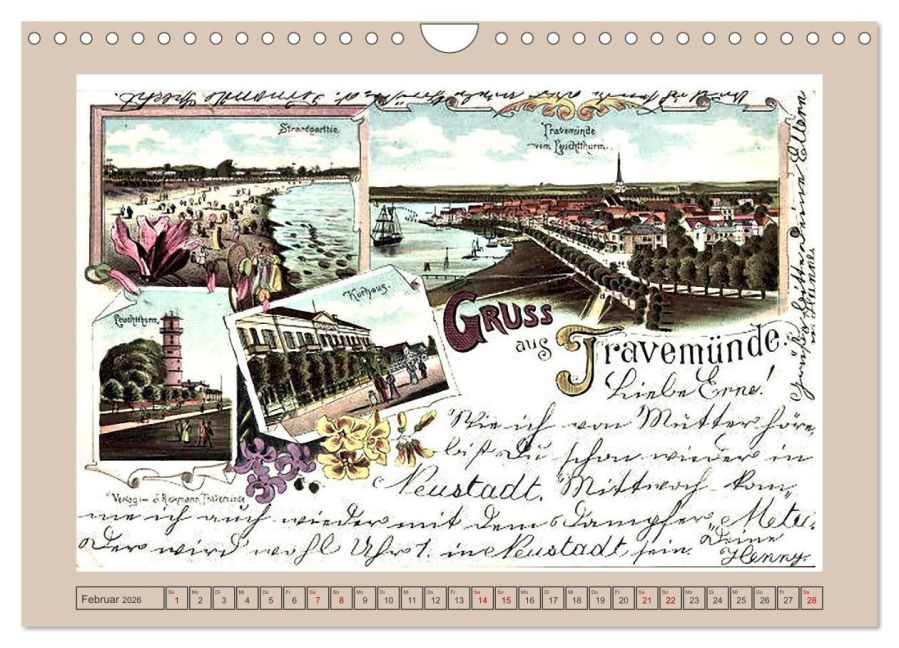 Strandparthie.
Travemünde
vom Leuchtthurm.
Leuchtthurm.
Kurhaus.
GRUSS
aus
Travemünde.
Liebe Erna!
Wie ich von Mutter höre,
bist Du schon wieder in
Neustadt. Mittwoch kom-
me ich auch wieder mit dem Dampfer „Meta."
Der wird wohl Uhr 1. in Neustadt sein.
Deine
Henny.
Grüße bitte Deine Eltern
Verlag
Travemünde
Februar 2026
So 1 Mo 2 Di 3 Mi 4 Do 5 Fr 6 Sa 7 So 8 Mo 9 Di 10 Mi 11 Do 12 Fr 13 Sa 14 So 15 Mo 16 Di 17 Mi 18 Do 19 Fr 20 Sa 21 So 22 Mo 23 Di 24 Mi 25 Do 26 Fr 27 Sa 28